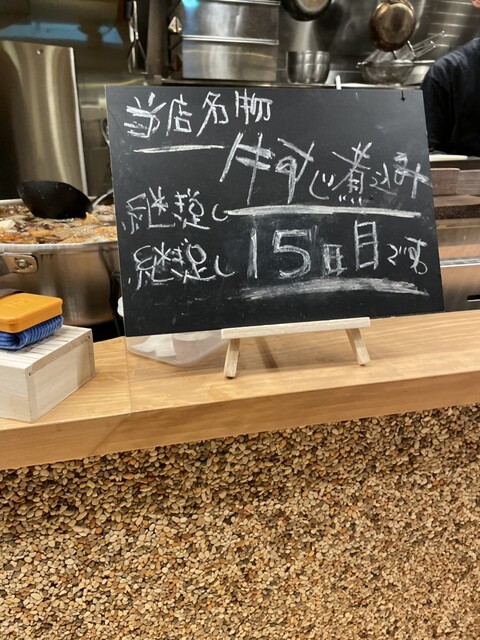 当店名物
牛すじ煮込み
継ぎ足し
継ぎ足し 15日目です